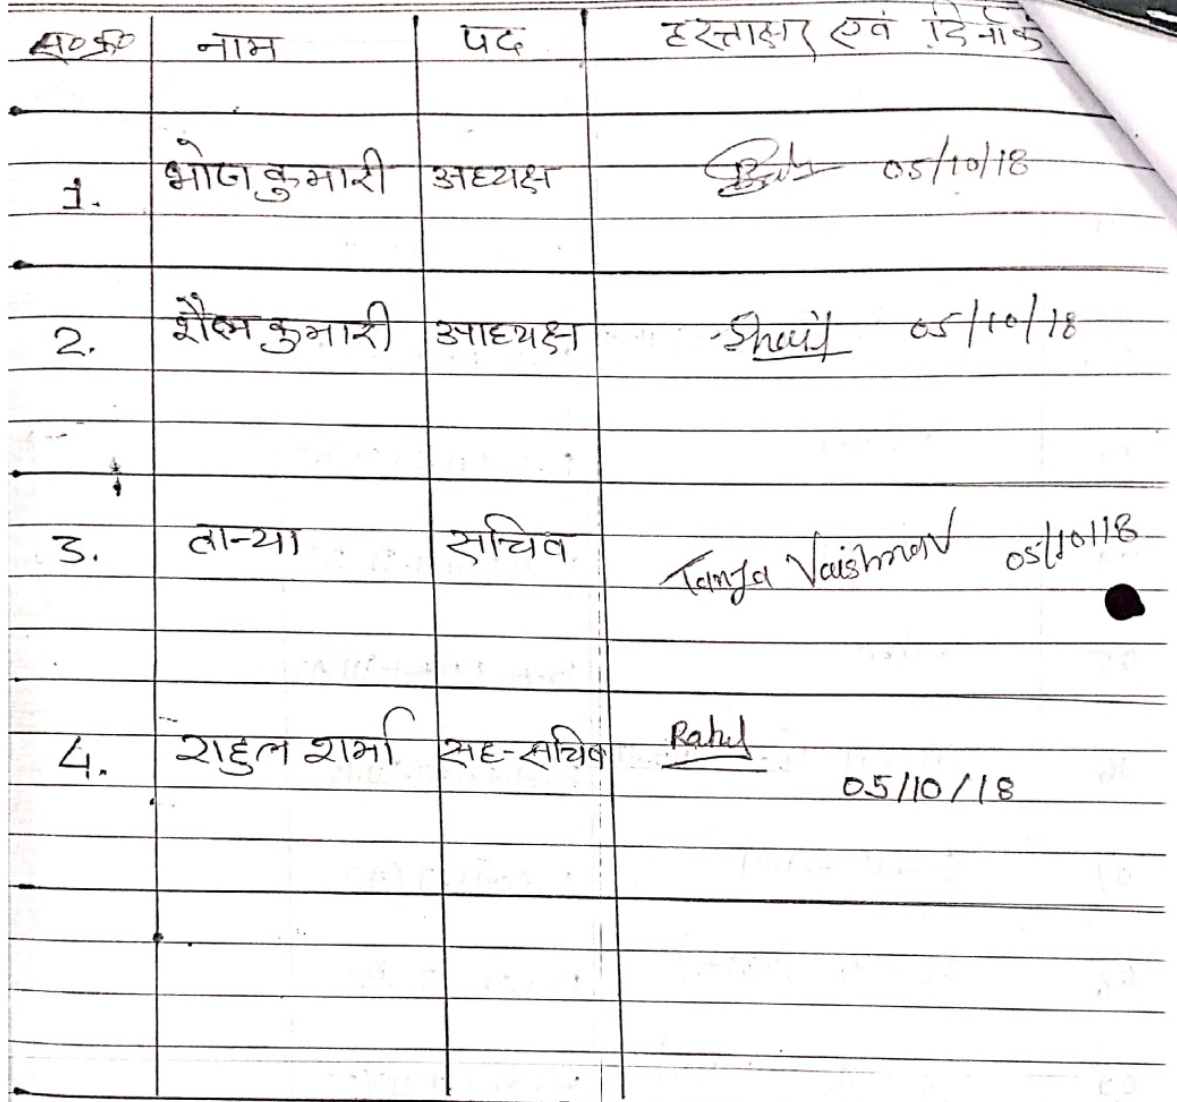 स०क्र० नाम पद हस्ताक्षर एवं दिनांक
1. भोज कुमारी अध्यक्ष 05/10/18
2. शैल कुमारी उपाध्यक्ष 05/10/18
3. तान्या सचिव Tanya Vaishnav 05/10/18
4. राहुल शर्मा सह-सचिव Rahul
05/10/18